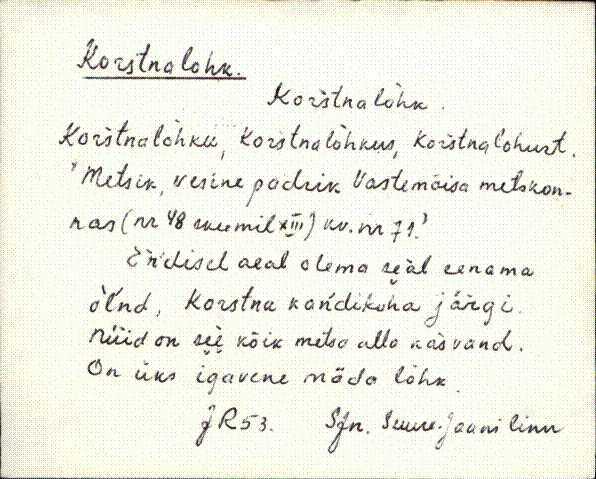 Korstnalohk.
Korstnalòhk.
Korstnalòhku, Korstnalòhkus, Korstnalohust.
'Metsik, vesine padrik Vastemõisa metskon-
nas (nr 48 ruumil XIII) kv. nr 71.'
Eńdisel aeal olema seäl eenama
õlnd, Korstna kańdikoha järgi.
Nüid on see kõik metsa alla kasvand.
On üks igavene mäda lòhk.
JR 53. SJn. Suure-Jaani linn